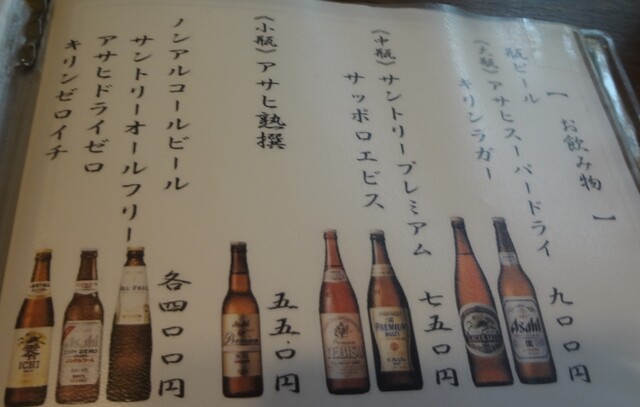 【お飲み物】
瓶ビール
(大瓶) アサヒスーパードライ
キリンラガー
九〇〇円
(中瓶) サントリープレミアム
サッポロエビス
七五〇円
(小瓶) アサヒ熟撰
五五〇円
ノンアルコールビール
サントリーオールフリー
アサヒドライゼロ
キリンゼロイチ
各四〇〇円
零
ICHI
DRY ZERO
ALL-FREE
Asahi
Premium
YEBISU
PREMIUM
Asahi